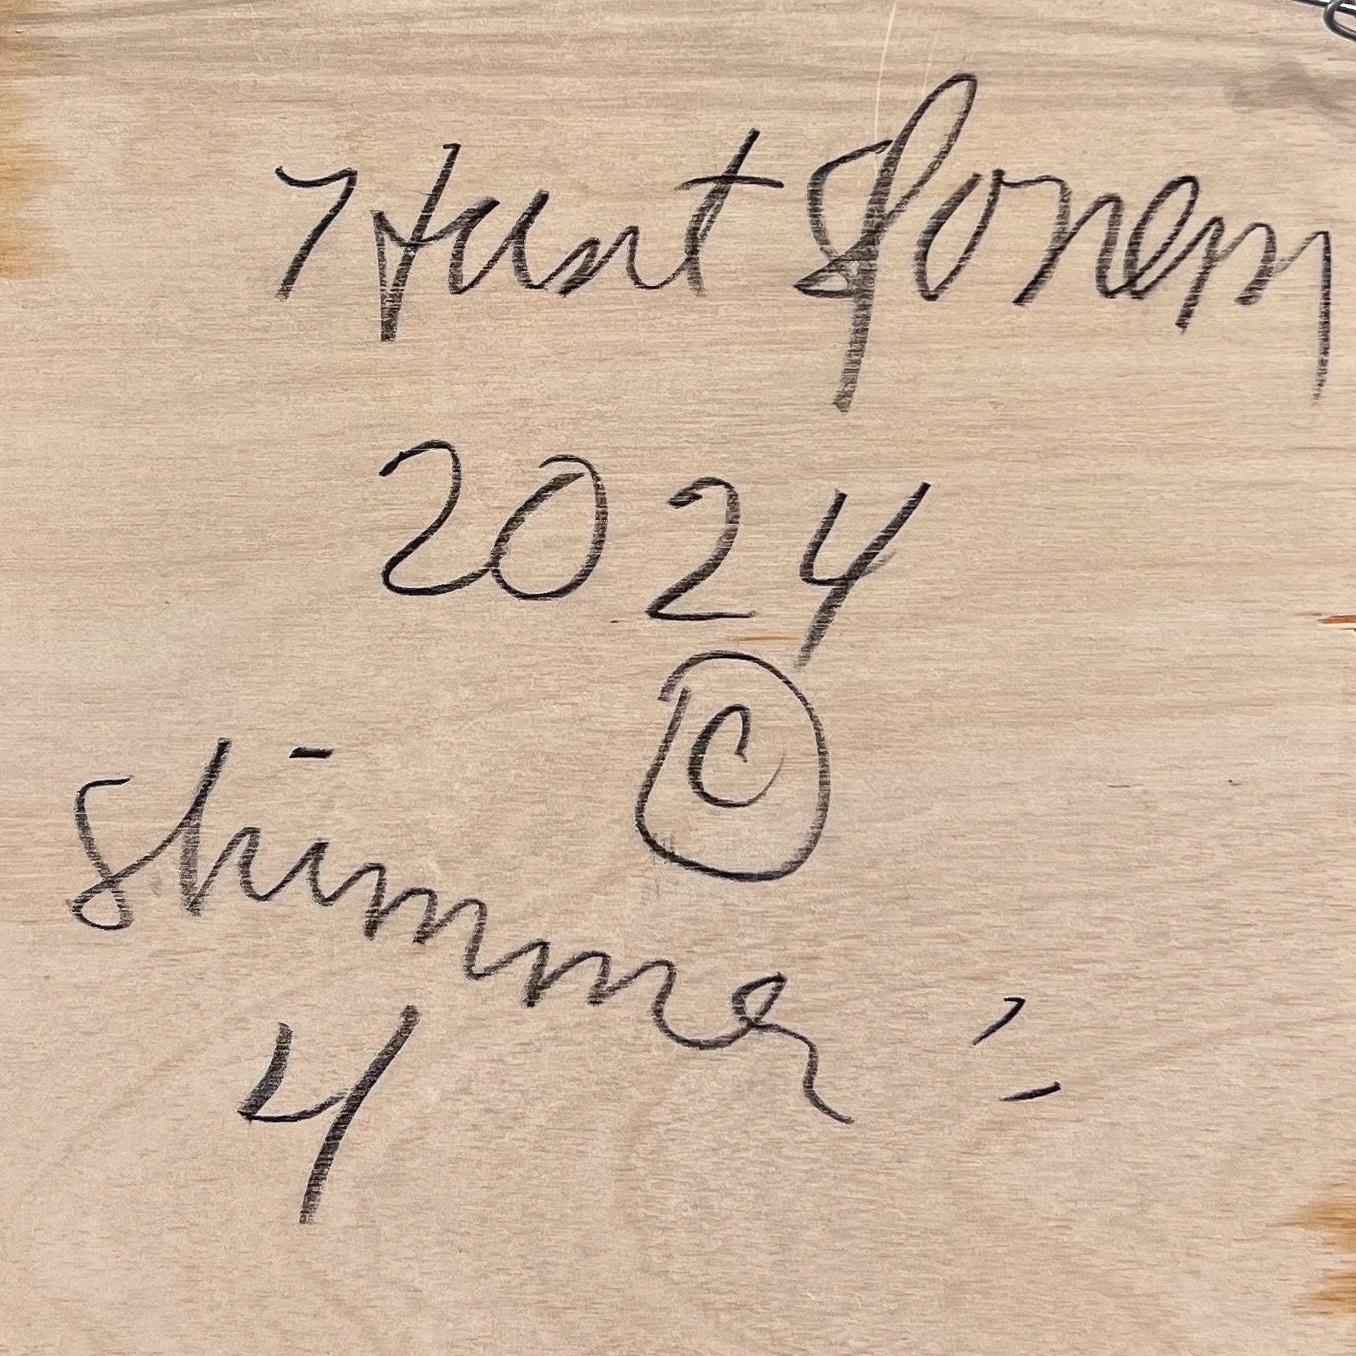 Hunt Slonem
2024
©
Shimmer
4